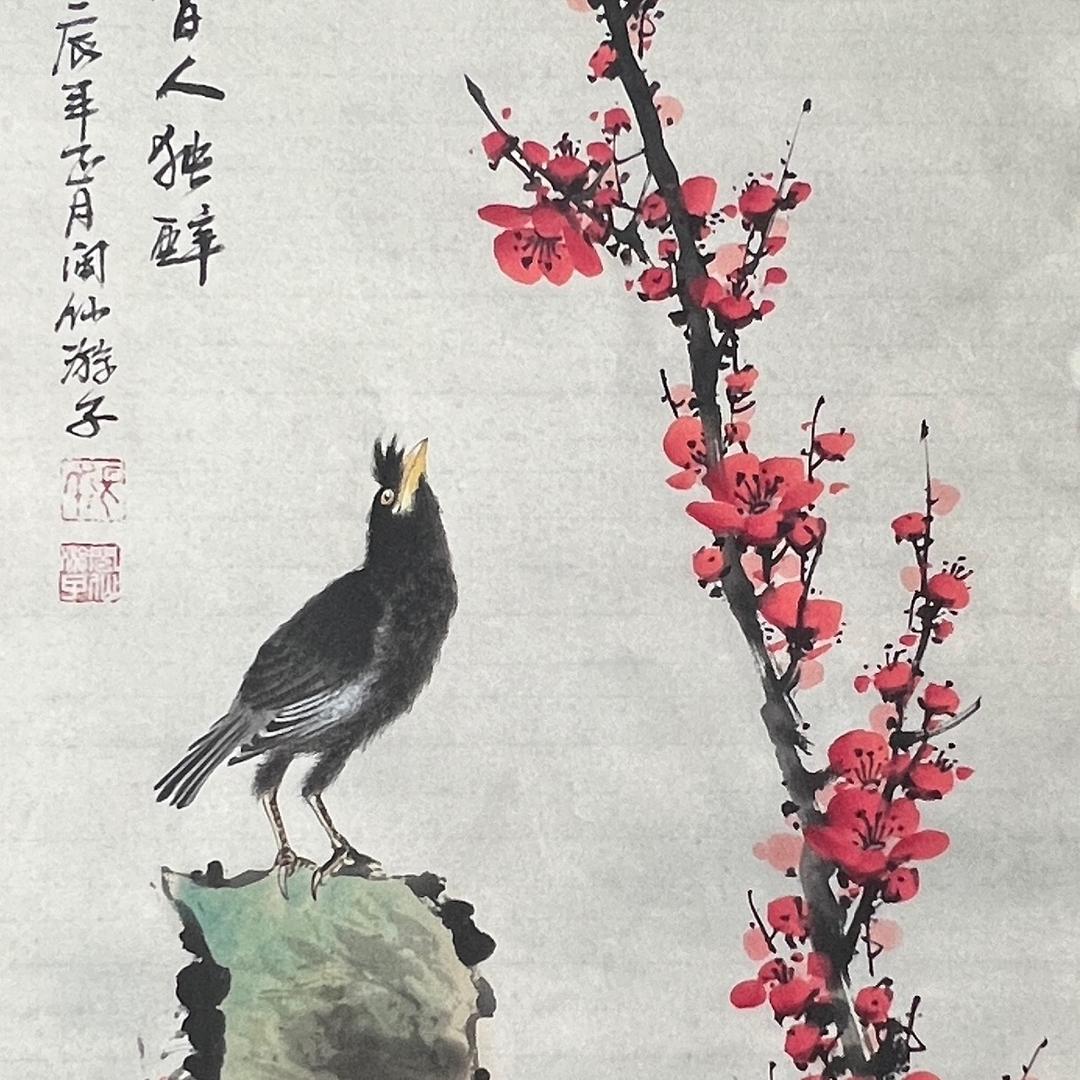 人独醉
辰年正月闽仙游子